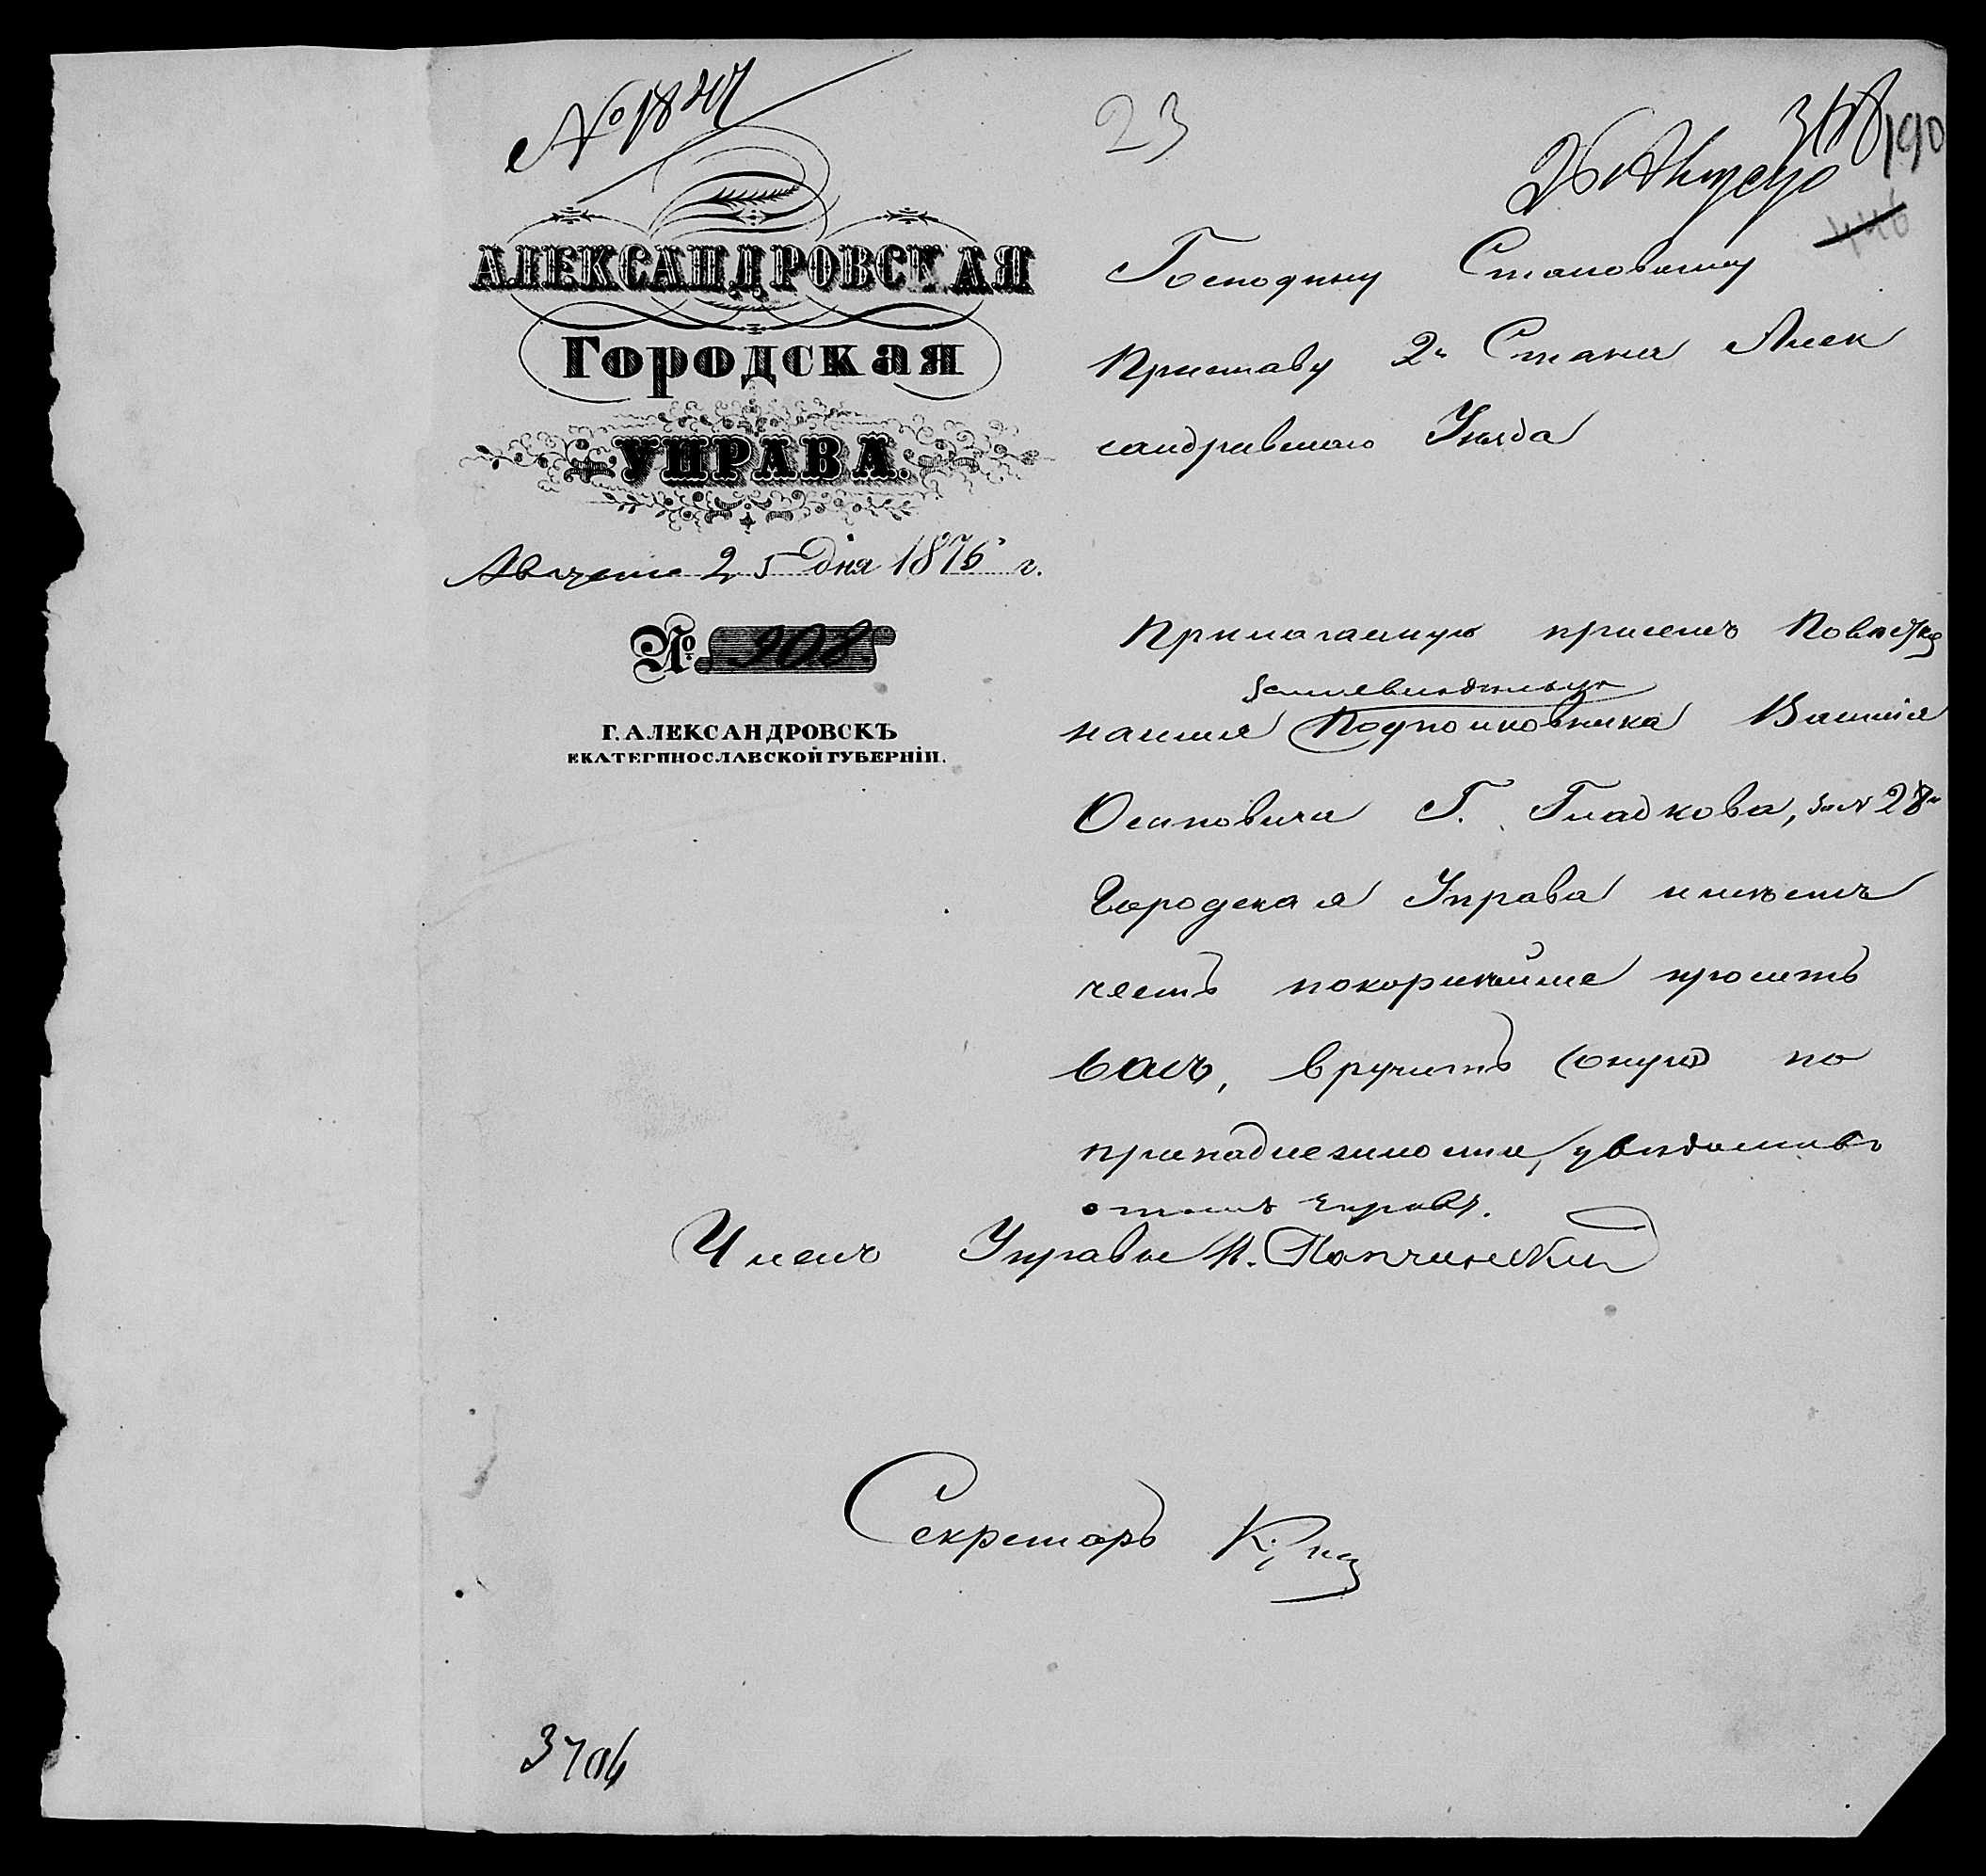 № 1847
23
26 Августа
190
446
АЛЕКСАНДРОВСКАЯ
Городская
УПРАВА.
Августа 25 дня 1876 г.
№ 908
Г. АЛЕКСАНДРОВСКЪ
ЕКАТЕРИНОСЛАВСКОЙ ГУБЕРНІИ.
Господину Становому
Приставу 2го Стана Алек
сандровскаго Уѣзда
Прилагаемую присемъ Повѣстку
на имя Подполковника
Осиповича Г. Гладкова, за № 28
Городская Управа имѣетъ
честь покорнѣйше просить
васъ, вручить оную по
принадлежности, увѣдомивъ
о томъ Управу.
Членъ Управы
Секретарь
3704